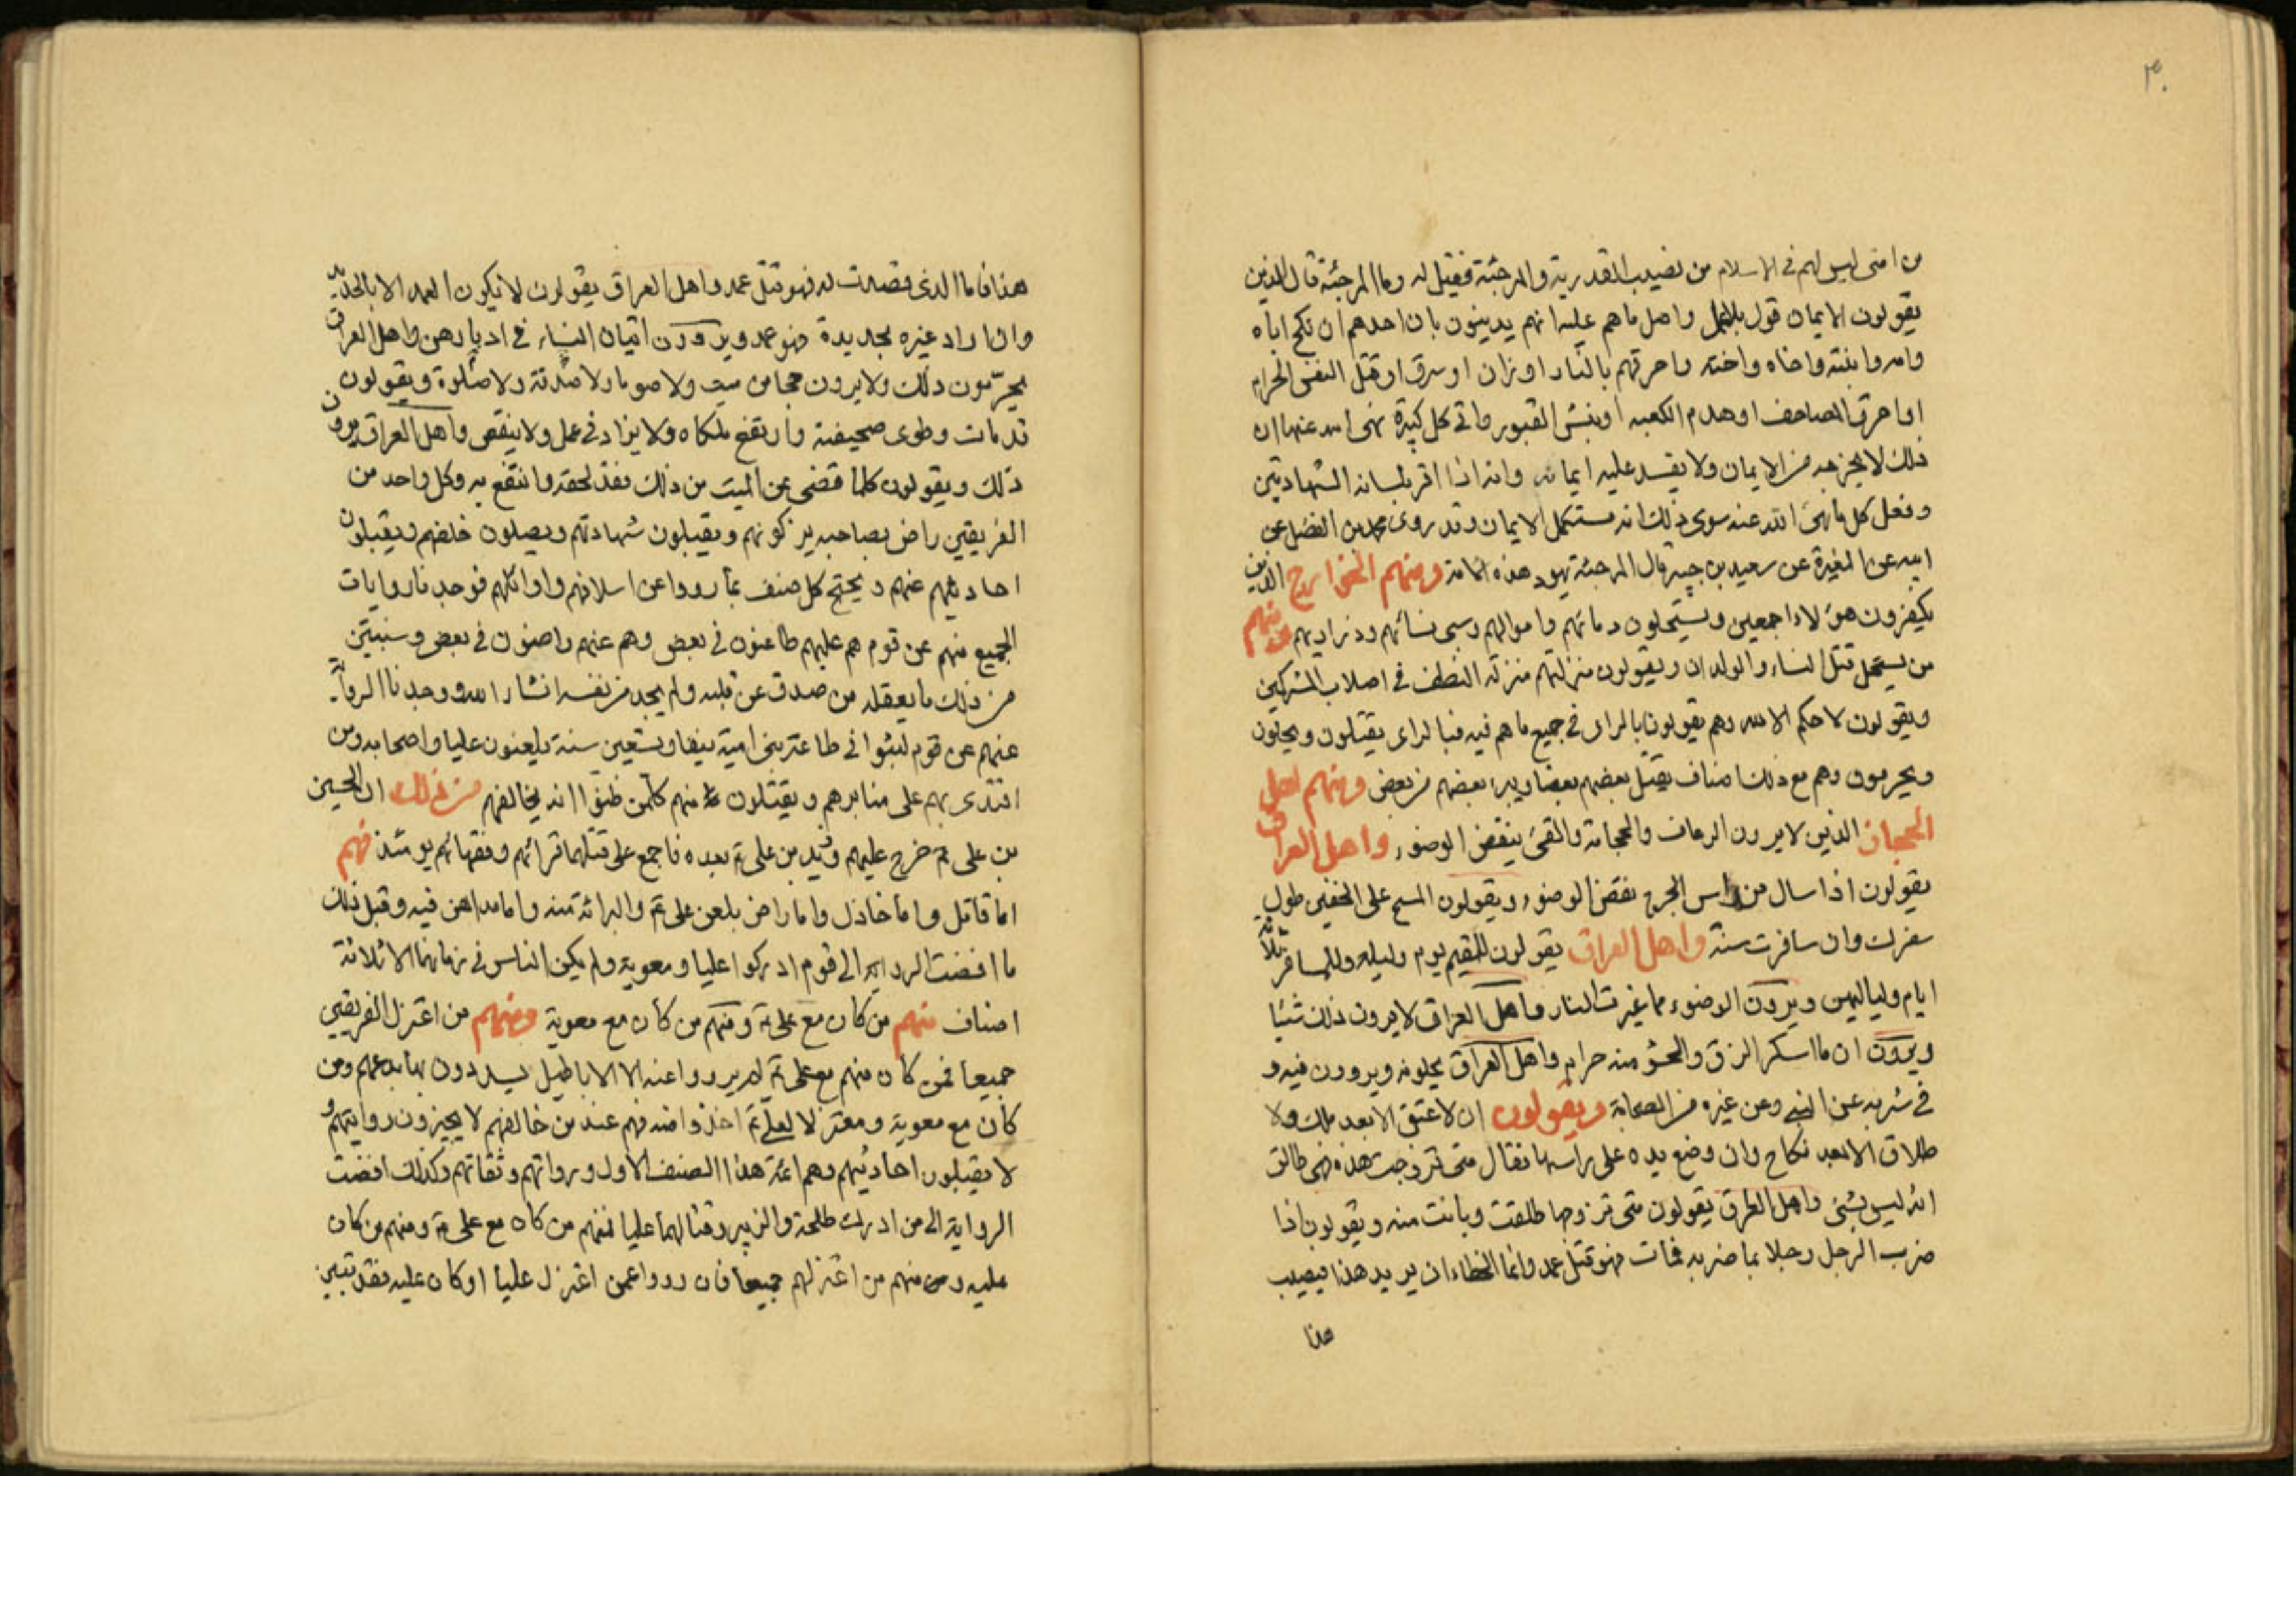 ٣٠
من امتى ليس لهم فى الاسلام من نصيب القدرية والمرجئة فقيل له وما المرجئة قال الذين
يقولون الايمان قول بلاعمل واصل ماهم عليه انهم يدينون بان احدهم ان نكح اباه
وامه وابنته واخاه واخته واحرقهم بالنار اوزان او سرق او قتل النفس الحرام
او احرق المصاحف او هدم الكعبه او نبش القبور واتى كل كبيرة نهى الله عنها ان
ذلك لا يخرجه من الايمان ولا يفسد عليه ايمانه وانه اذا اقر بلسانه الشهادتين
وفعل كل مانهى الله عنه سوى ذلك انه مستكمل الايمان وقد روى محمد بن الفضل عن
ابيه عن المغيرة عن سعيد بن جبير قال المرجئة يهود هذه الامة ومنهم الخوارج الذين
يكفرون هؤلاء اجمعين ويستحلون دمائهم واموالهم وسبى نسائهم وذراريهم ومنهم
من يستحل قتل النساء والولدان ويقولون منزلتهم منزلة النطف فى اصلاب المشركين
ويقولون لاحكم الا لله وهم يقولون بالراى فى جميع ماهم فيه فبالراى يقتلون ويحلون
ويحرمون وهم مع ذلك اصناف يقتل بعضهم بعضا ويبرء بعضهم من بعض ومنهم اهل
الحجاز الذين لايرون الرعاف والحجامة والقئ ينقض الوضوء واهل العراق
يقولون اذا سال من راس الجرح نقض الوضوء ويقولون المسح على الخفين طول
سفرك وان سافرت سنة واهل العراق يقولون للمقيم يوم وليله وللمسافر ثلاثة
ايام ولياليهن ويرون الوضوء مما غيرت النار واهل العراق لايرون ذلك شيئا
ويرون ان ما اسكر الزق والحسو منه حرام واهل العراق يحلونه ويروون فيه و
فى شربه عن النبى وعن غيره من الصحابة ويقولون ان لاعتق الا بعد ملك ولا
طلاق الا بعد نكاح وان وضع يده على راسها فقال متى تزوجت هذه فهى طالق
انه ليس بشئ واهل العراق يقولون متى تزوجها طلقت وبانت منه ويقولون اذا
ضرب الرجل رجلا بما ضربه فمات فهو قتل عمد وانما الخطاء ان يريد هذا فيصيب
هذا
هذا فاما الذى قصدت له فهو قتل عمد واهل العراق يقولون لايكون العمد الا بالحديد
وان اراد غيره بحديدة فهو عمد ويرون اتيان النساء فى ادبارهن واهل العراق
يحرّمون ذلك ولايرون حجا من ميت ولا صوما ولا صدقة ولا صلوة ويقولون
قد مات وطوى صحيفته وارتفع ملكاه ولا يزاد فى عمل ولا ينقص واهل العراق يرون
ذلك ويقولون كلما قضى عن الميت من ذلك فقد لحقه وانتفع به وكل واحد من
الفريقين راض بصاحبه يزكونهم ويقبلون شهادتهم ويصلون خلفهم ويقبلون
احاديثهم عنهم ويحتج كل صنف بما رووا عن اسلافهم واوائلهم فوجدنا روايات
الجميع منهم عن قوم هم عليهم طاعنون فى بعض وهم عنهم راضون فى بعض وسنبين
من ذلك ما يعقله من صدق عن قلبه ولم يجد من نفسه انشاء الله ووجدنا الرواية
عنهم عن قوم لبثوا فى طاعة بنى امية نيفا وتسعين سنة يلعنون عليا واصحابه ومن
اقتدى بهم على منابرهم ويقتلون منهم كلمن ظنوا انه يخالفهم من ذلك ان الحسين
بن على ع خرج عليهم وزيد بن على ع بعده فاجمع على قتلهما قرائهم وفقهائهم يومئذ فهم
اما قاتل واما خاذل واما راض بلعن على ع والبرائة منه واما مداهن فيه وقبل ذلك
ما افضت الرواية الى قوم ادركوا عليا ومعوية ولم يكن الناس فى زمانهما الا ثلاثة
اصناف منهم من كان مع على ع ومنهم من كان مع معوية ومنهم من اعتزل الفريقين
جميعا فمن كان منهم مع على ع لم يرووا عنه الا الاباطيل يسددون بها بدعهم ومن
كان مع معوية ومعتزلا لعلى ع اخذوا منه فهم عند من خالفهم لايجيزون روايتهم و
لا يقبلون احاديثهم وهم ائمة هذا الصنف الاول ورواتهم وثقاتهم وكذلك افضت
الرواية الى من ادرك طلحة والزبير وقتالهما عليا فمنهم من كان مع على ع ومنهم من كان
عليه ومنهم من اعتزلهم جميعا فان رووا عمن اعتزل عليا او كان عليه فقد تبين